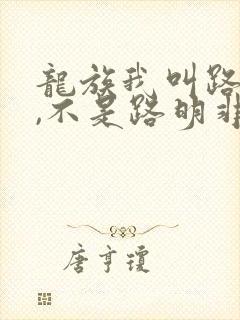 龍族我叫路
,不是路明非
唐亨瓊